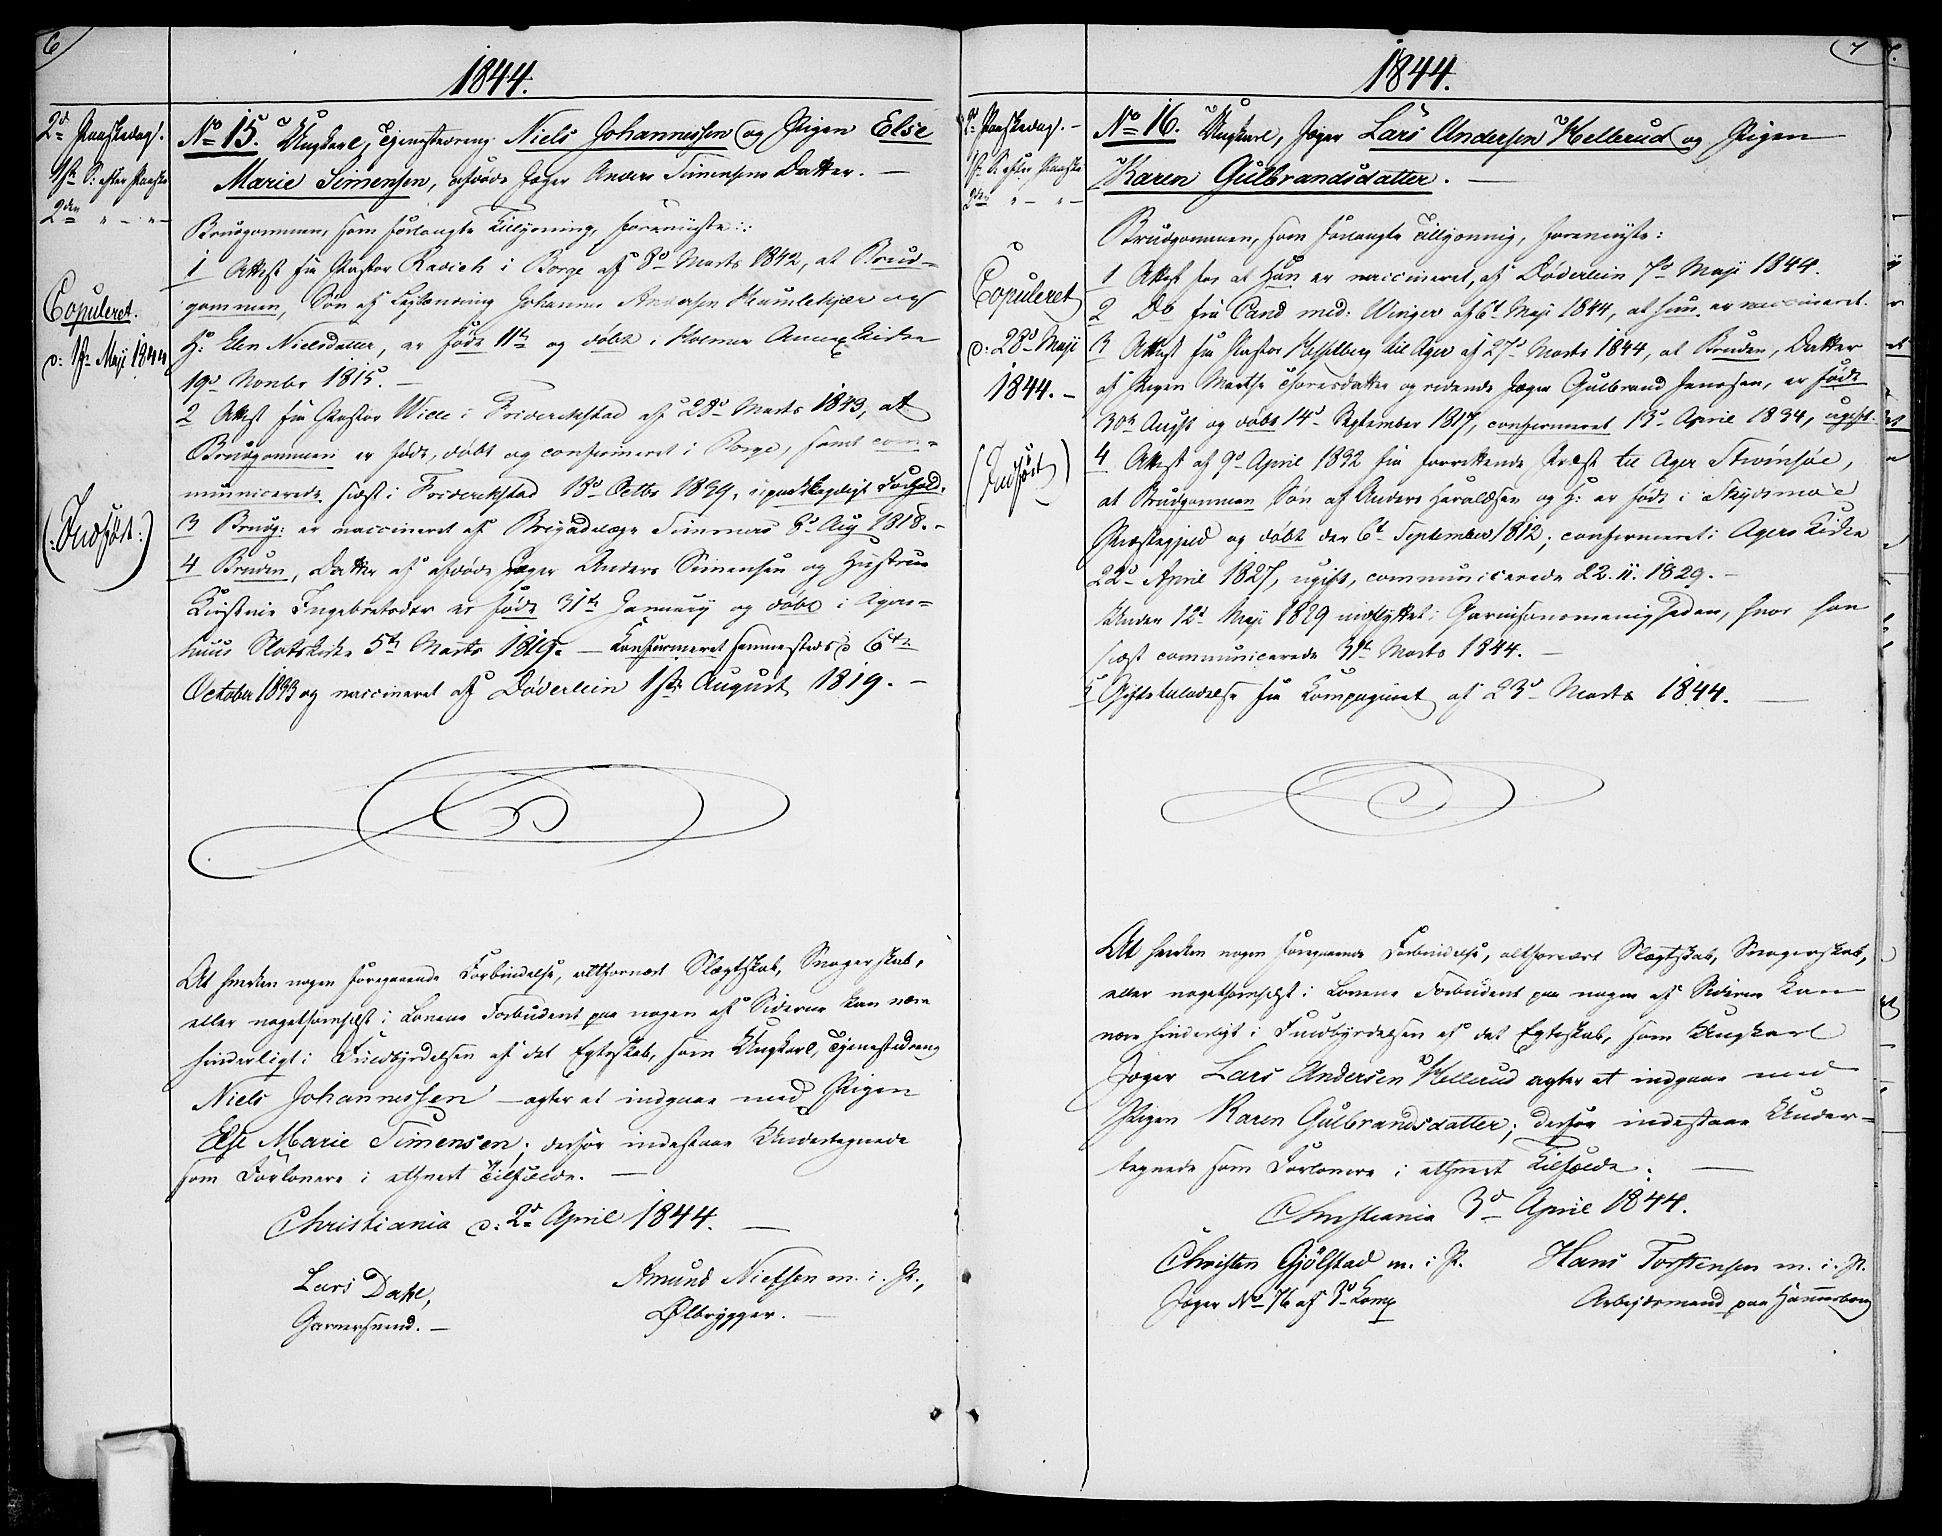 6
1844.
2d Paaskedag.
1ste S: efter Paaske
2den " — " —
Copuleret.
d: 1ste Maji 1844
(: Indført :)
No 15. Ungkarl, Tjenestedreng Niels Johannessen og Pigen Else
Marie Simensen, afdøde Jæger Anders Simensens Datter. —
Brudgommen, som forlangte Tillysning, foreviiste:
1 Attest fra Pastor Ravich i Borge af 8d Marts 1842, at Brud-
gommen, Søn af Johannes Andersen og
H: Elen Nielsdatter, er født 11te og døbt i Annex Kirke
19d Novbr 1815. —
2 Attest fra Pastor Wide i Friderickstad af 28d Marts 1843, at
Brudgommen er født, døbt og confirmeret i Borge, samt com-
municerede sidst i Friderickstad 18d Octbr 1839, i Forhold.
3 Brudg: er vaccineret af Brigadelæge 8d Aug 1818. —
4 Bruden, Datter af afdøde Jæger Anders Simensen og Hustrue
Kirstine Ingebretsdtr er født 31te January og døbt i Agers-
huus Slotskirke 5te Marts 1815. — Konfirmeret sammesteds d 6te
October 1833 og vaccineret af Døderlein 1ste August 1819. —
At hverken nogen foregaaende Forbindelse, altfornært Slægtskab, Svogerskab,
eller nogetsomhelst i Lovene Forbudent paa nogen af Siderne kan være
hinderligt i Fuldbyrdelsen af det Egteskab, som Ungkarl, Tjenestedreng
Niels Johannessen — agter at indgaae med Pigen
Else Marie Simensen; derfor indestaae Undertegnede
som Forlovere i ethvert Tilfælde. —
Christiania d: 2d April 1844. —
Lars Dahl,
Garversvend. —
Amund Nielsen m. i. P.,
Ølbrygger. —
7
1844.
2d Paaskedag. —
1ste S. efter Paaske
2den " — " —
Copuleret
d: 28d Maji
1844. —
(Indført)
No 16. Ungkarl, Jæger Lars Andersen Hellerud og Pigen
Karen Gulbrandsdatter. —
Brudgommen, som forlangte Tillysning, foreviiste:
1 Attest for at Han er vaccineret, af Døderlein 7d Maji 1844.
2 Do fra Cand med: Winger af 6t Maji 1844, at hun er vaccineret.
3 Attest fra Pastor Hesselberg til Ager af 27d Marts 1844, at Bruden, Datter
af Pigen Marthe Thoresdatter og ridende Jæger Gulbrand Jensen, er født
30te Augst og døbt 14d September 1817, confirmeret 13d April 1834, ugift.
4 Attest af 9d April 1832 fra forrettende Præst til Ager
at Brudgommen, Søn af Anders Haraldsen og H: er født i
Præstegjeld og døbt der 6t September 1812; confirmeret i Agers Kirke
22d April 1827, ugift, communicerede 22. 11. 1829. —
Under 12t Maji 1829 indflyttet i Garnisonsmenigheden, hvor han
sidst communicerede 31te Marts 1844. —
5 Giftetilladelse fra Kompagniet af 23d Marts 1844. —
At hverken nogen foregaaende Forbindelse, altfornært Slægtskab, Svogerskab,
eller nogetsomhelst i Lovene Forbudent paa nogen af Siderne kan
være hinderligt i Fuldbyrdelsen af det Egteskab, som Ungkarl
Jæger Lars Andersen Hellerud agter at indgaae med
Pigen Karen Gulbrandsdatter; derfor indestaae Under-
tegnede som Forlovere i ethvert Tilfælde. —
Christiania 3d April 1844.
Christen Gjølstad m. i. P.
Jæger No 76 af 3d Komp
Hans Torstensen m. i. P.
Arbejdsmand paa Hammersborg